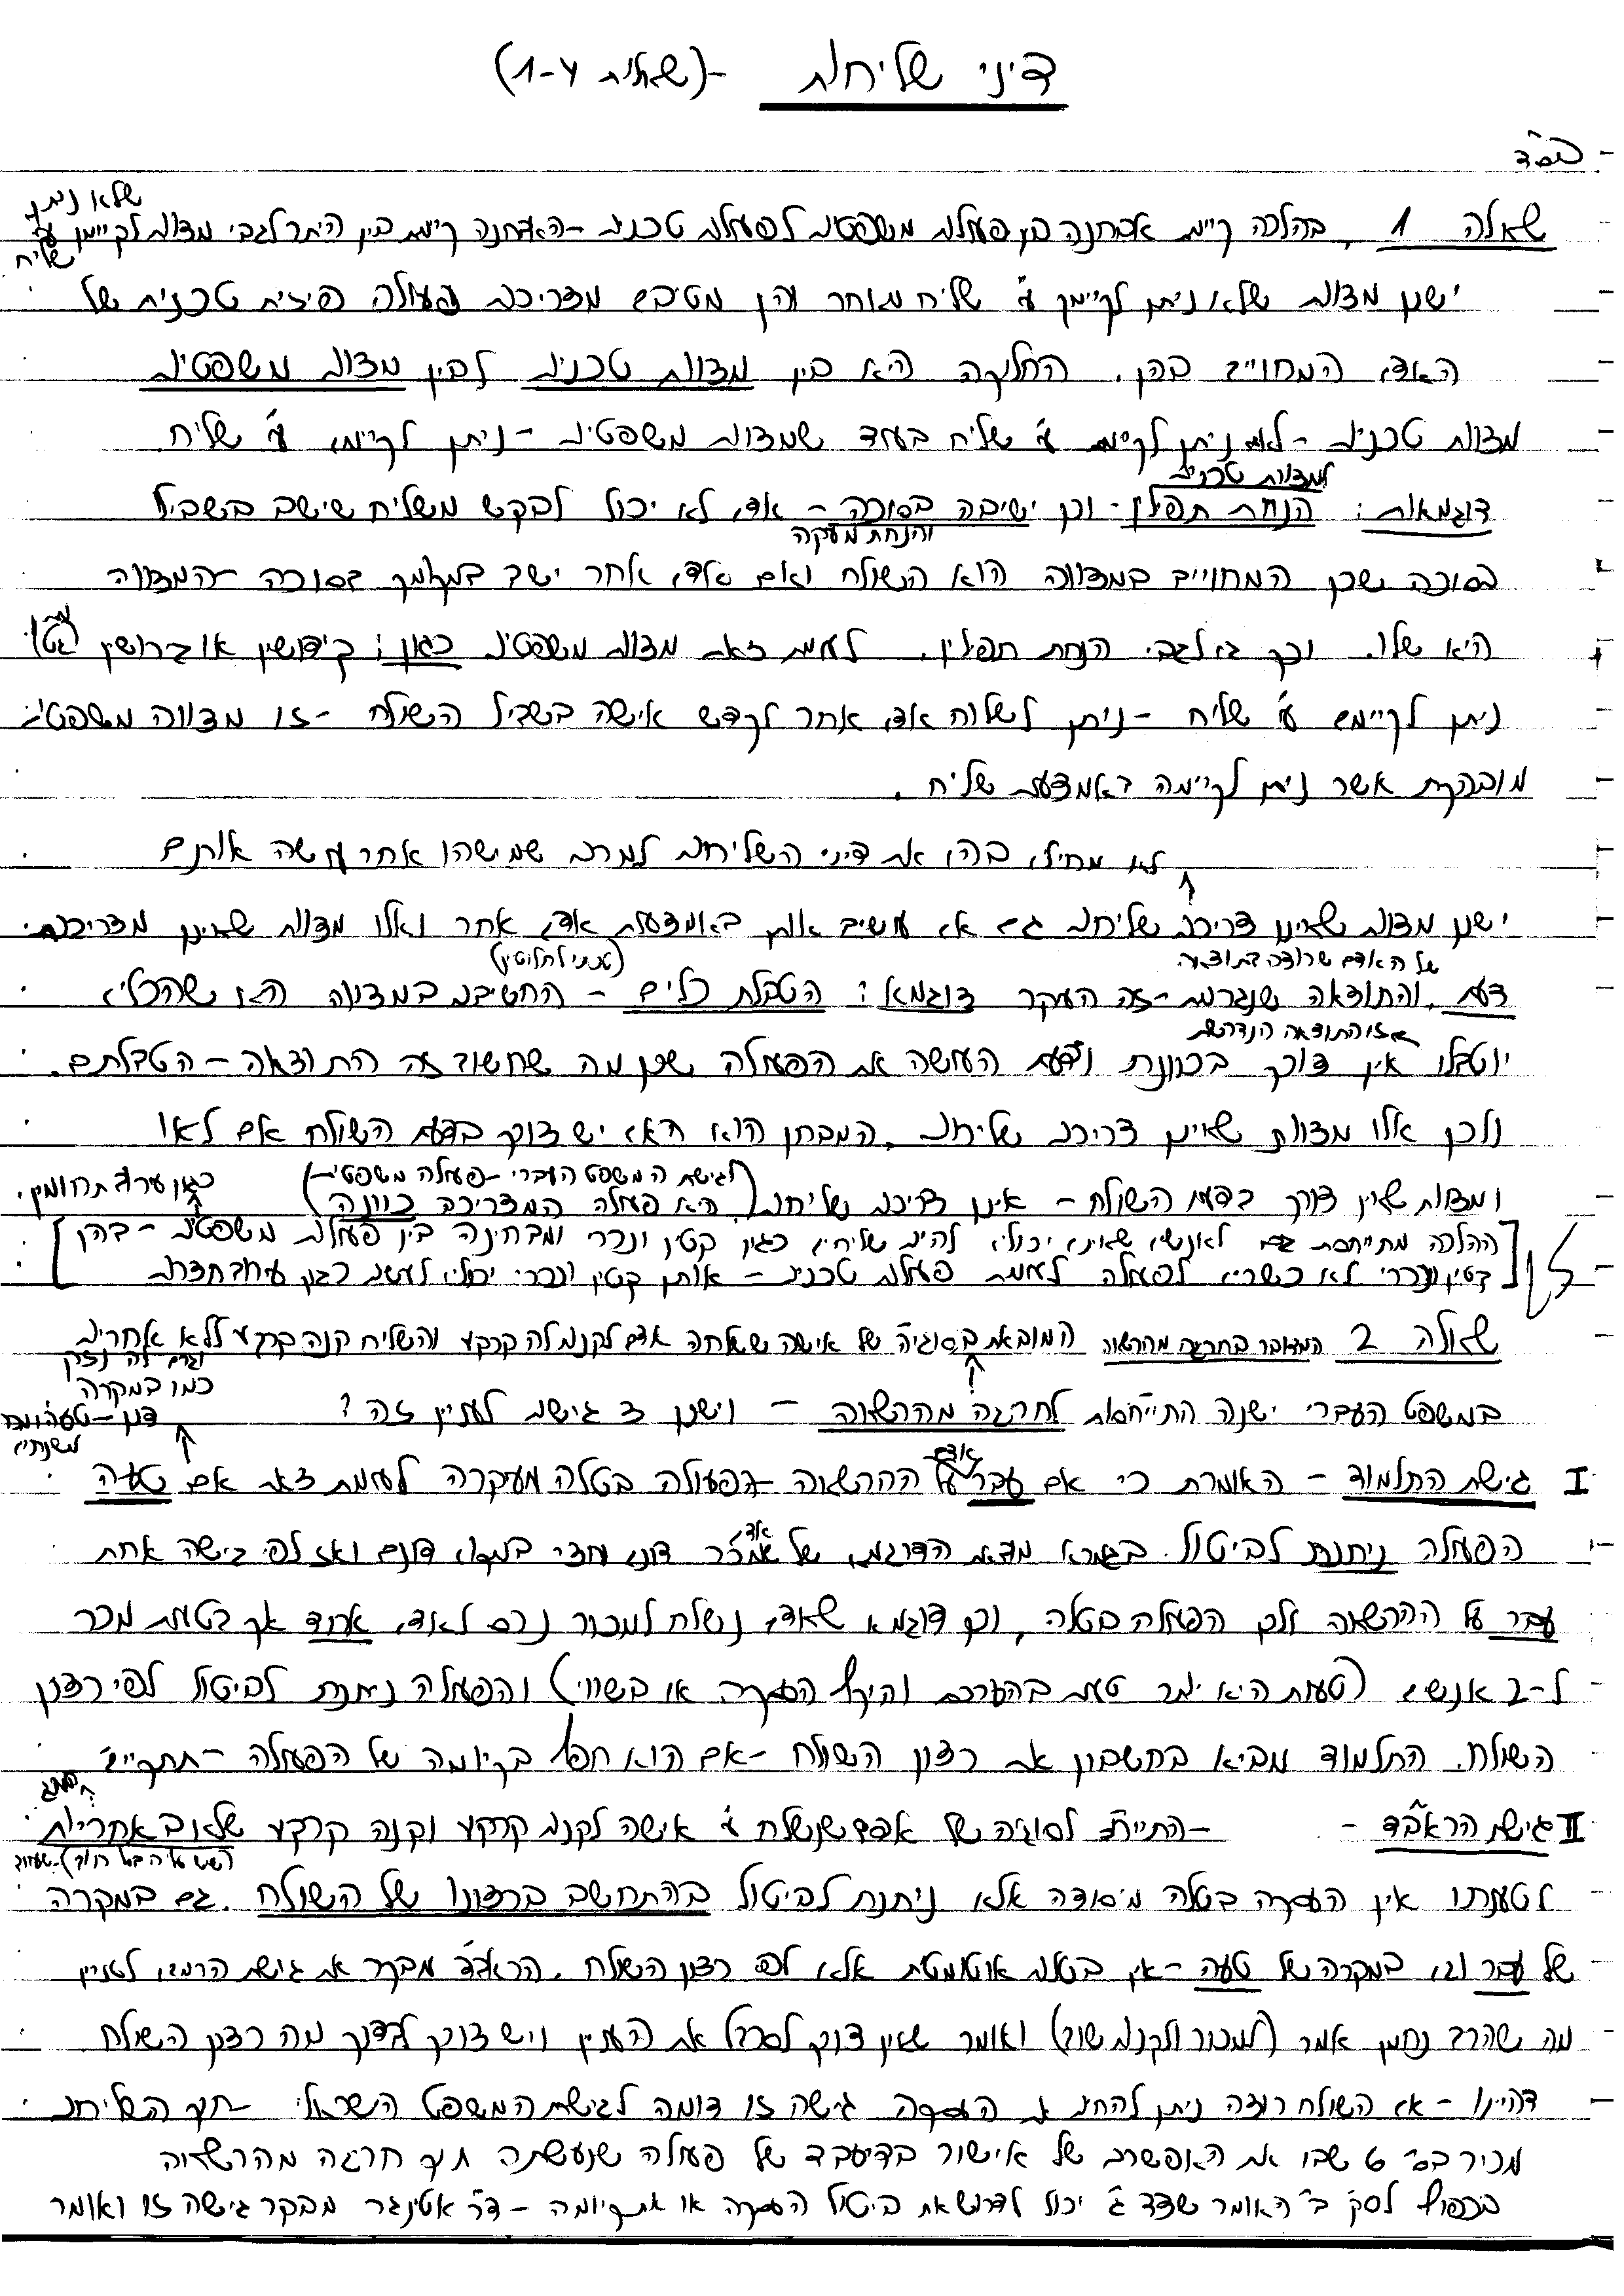 דיני שליחות -(שאלות 1-4)
בס"ד
שלא ניתן
שאלה 1. בהלכה קיימת אבחנה בין פעולות משפטיות לפעולות טכניות - האבחנה קיימת בין היתר לגבי מצוות לקיימן ע"י
שליח
ישנן מצוות שלא ניתן לקיימן ע"י שליח מאחר והן מטיבן מצריכות פעולה פיזית טכנית של
האדם המחוייב בהן. החלוקה היא בין מצוות טכניות לבין מצוות משפטיות
מצוות טכניות - לא ניתן לקיימן ע"י שליח בעוד שמצוות משפטיות - ניתן לקיימן ע"י שליח.
למצוות טכניות
דוגמאות: הנחת תפילין - וכן ישיבה בסוכה - אדם לא יכול לבקש משליח שישב בשבילו
והנחת מעקה
בסוכה שכן המחוייב במצווה הוא השולח ואם אדם אחר ישב במקומך בסוכה - המצווה
היא שלו. וכך גם לגבי הנחת תפילין. לעומת זאת מצוות משפטיות כגון: קידושין או גירושין (גט)
ניתן לקיימם ע"י שליח - ניתן לשלוח אדם אחר לקדש אישה בשביל השולח - זו מצווה משפטית
מובהקת אשר ניתן לקיימה באמצעות שליח.
לא מחילים בהן את דיני השליחות למרות שמישהו אחר עושה אותם
ישנן מצוות שאינן צריכות שליחות גם אם עושים אותן באמצעות אדם אחר ואלו מצוות שאינן מצריכות
של האדם שרוצה בתוצאה (טכני לחלוטין)
דעת, והתוצאה שנגרמת - זה העיקר דוגמא: הטבלת כלים - החשיבות במצווה היא שהכלים
זוהי התוצאה הנדרשת
יוטבלו אין צורך בכוונת ודעת העושה את הפעולה שכן מה שחשוב זה התוצאה - הטבלתם.
ולכן אלו מצוות שאינן צריכות שליחות. המבחן הוא האם יש צורך בדעת השולח אם לאו
(לגישת המשפט העברי - פעולה משפטית - כגון עירוב תחומין.
ומצוות שאין צורך בדעת השולח - אינן צריכות שליחות (היא פעולה המצריכה כוונה)
[ההלכה מתייחסת גם לאנשים שאינם יכולים להיות שליחים כגון קטן ונכרי ומבחינה בין פעולות משפטיות - בהן
קטין ונכרי לא כשרים לפעולה לעומת פעולות טכניות - אותן קטין ונכרי יכולים לעשות כגון עירוב חצרות]
שאלה 2 המדובר בחריגה מהרשאה המובאת בסוגיה של אישה ששלחה אדם לקנות לה קרקע והשליח קנה קרקע ללא אחריות
וגרם לה נזק
כמו במקרה
במשפט העברי ישנה התייחסות לחריגה מההרשאה - וישנן 3 גישות לעניין זה:
I גישת התלמוד - האומרת כי אם אדם עבר על ההרשאה - הפעולה בטלה מעיקרה לעומת זאת אם טעה
הפעולה ניתנת לביטול. בגמרא מובאת הדוגמא של אדם שמכר דונם וחצי במקום דונם ואז לפי גישה אחת
עבר על ההרשאה ולכן הפעולה בטלה, וכן דוגמא שאדם נשלח למכור נכס לאדם אחד אך בטעות מכר
ל-2 אנשים (טעות היא יותר טעות בהערכת והיקף העסקה או בשווי) והפעולה ניתנת לביטול לפי רצון
השולח. התלמוד מביא בחשבון את רצון השולח - אם הוא חפץ בקיומה של הפעולה - תתקיים
II גישת הראב"ד - - התייחס לסוגיה של אדם שנשלח ע"י אישה לקנות קרקע וקנה קרקע שלא באחריות
לטענתו אין העסקה בטלה מיסודה אלא ניתנת לביטול בהתחשב ברצונו של השולח. גם במקרה
של עבר וגם במקרה של טעה - אין בטלות אוטומטית אלא לפי רצון השולח. הראב"ד מבקר את גישת הרמב"ם לעניין
מה שהרב נחמן אמר (למכור ולקנות שוב) ואומר שאין צורך לסרבל את העניין ויש צורך לבדוק מה רצון השולח
דהיינו - אם השולח רוצה ניתן להחיות את העסקה גישה זו דומה לגישת המשפט הישראלי - חוק השליחות
מכיר בס' 6 שבו את האפשרות של אישור בדיעבד של פעולה שנעשתה תוך חריגה מהרשאה
בכפוף לסק' ב' האומר שצד ג' יכול לדרוש את ביטול העסקה או את קיומה - ד"ר אטינגר מבקר גישה זו ואומר